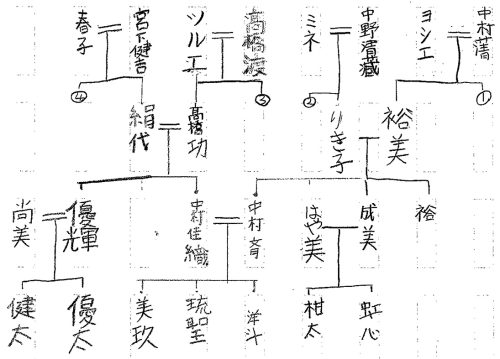 中村清
ヨシエ
中野濱蔵
ミネ
高橋渡
ツルエ
宮下健吉
春子
①
②
③
④
裕美
りき子
高橋功
絹代
裕
成美
はや美
中村斉
中村佳織
優輝
尚美
虹心
柑太
洋斗
琉聖
美玖
優太
健太